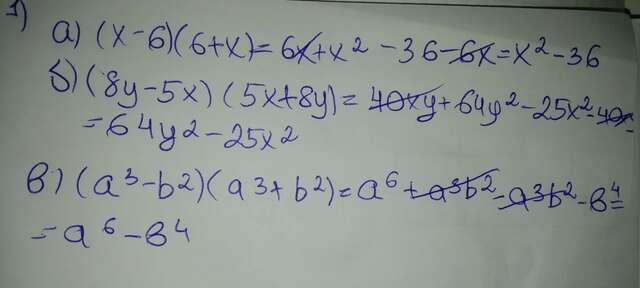 1)
а) (x-6)(6+x)=6x+x²-36-6x=x²-36
б) (8y-5x)(5x+8y)=40xy+64y²-25x²-40x
=64y²-25x²
в) (a³-b²)(a³+b²)=a⁶+a³b²-a³b²-в⁴=
=a⁶-в⁴